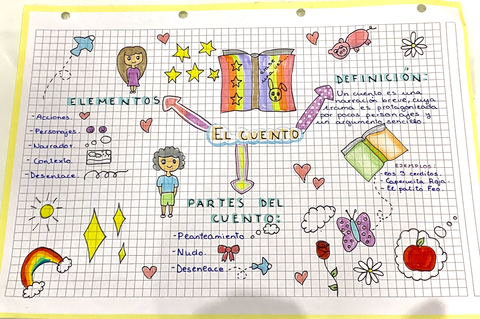 EL CUENTO
ELEMENTOS
- Acciones.
- Personajes.
- Narrador.
- Contexto.
- Desenlace.
DEFINICIÓN:
Un cuento es una
narración breve, cuya
trama es protagonizada
por pocos personajes y
un argumento sencillo.
EJEMPLOS:
- Los 3 cerditos.
- Caperucita Roja.
- El patito Feo.
PARTES DEL
CUENTO:
- Planteamiento
- Nudo.
- Desenlace